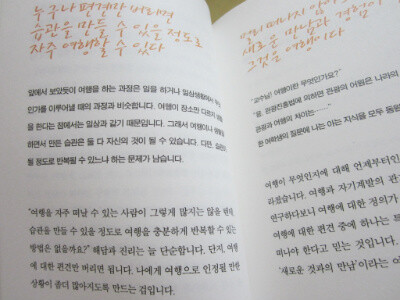 누구나 편견만 버리면
습관을 만들 수 있을 정도로
자주 여행할 수 있다
앞에서 보았듯이 여행을 하는 과정은 일을 하거나 일상생활에서
인가를 이루어낼 때의 과정과 비슷합니다. 여행이 장소만 다르지
을 한다는 점에서는 일상과 같기 때문입니다. 그래서 여행을
하면서 만든 습관은 둘 다 자신의 것이 될 수 있습니다. 다만,
될 정도로 반복될 수 있느냐 하는 문제가 남습니다.
"여행을 자주 떠날 수 있는 사람이 그렇게 많지는 않을 텐데,
습관을 만들 수 있을 정도로 여행을 충분하게 반복할 수 있는
방법은 없을까요?" 해답과 진리는 늘 단순합니다. 단지, 여행
에 대한 편견만 버리면 됩니다. 나에게 여행으로 인정될 만한
상황이 좀더 많아지도록 만드는 겁니다.
멀리 떠나지 않아도
새로운 만남과 경험이
그것은 여행이다
"교수님! 여행이란 무엇인가요?"
"음, 관광진흥법에 의하면 관광의 어원은 나라의
관광과 여행의 차이는……"
한 여학생의 질문에 나는 아는 지식을 모두 동원
여행이 무엇인지에 대해 언제부터인
하겠습니다. 여행과 자기계발의 관
연구하다보니 여행에 대한 정의가
여행에 대한 편견 중에 하나는
떠나야 한다고 믿는 것입니다.
'새로운 것과의 만남'이라는